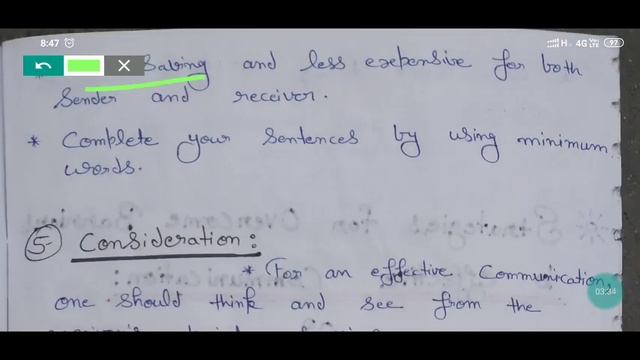 8:47
H 4G VoLTE 97
Saving and less expensive for both
Sender and receiver.
* Complete your sentences by using minimum
words.
5 Consideration :
* For an effective Communication,
one should think and see from the
03:34